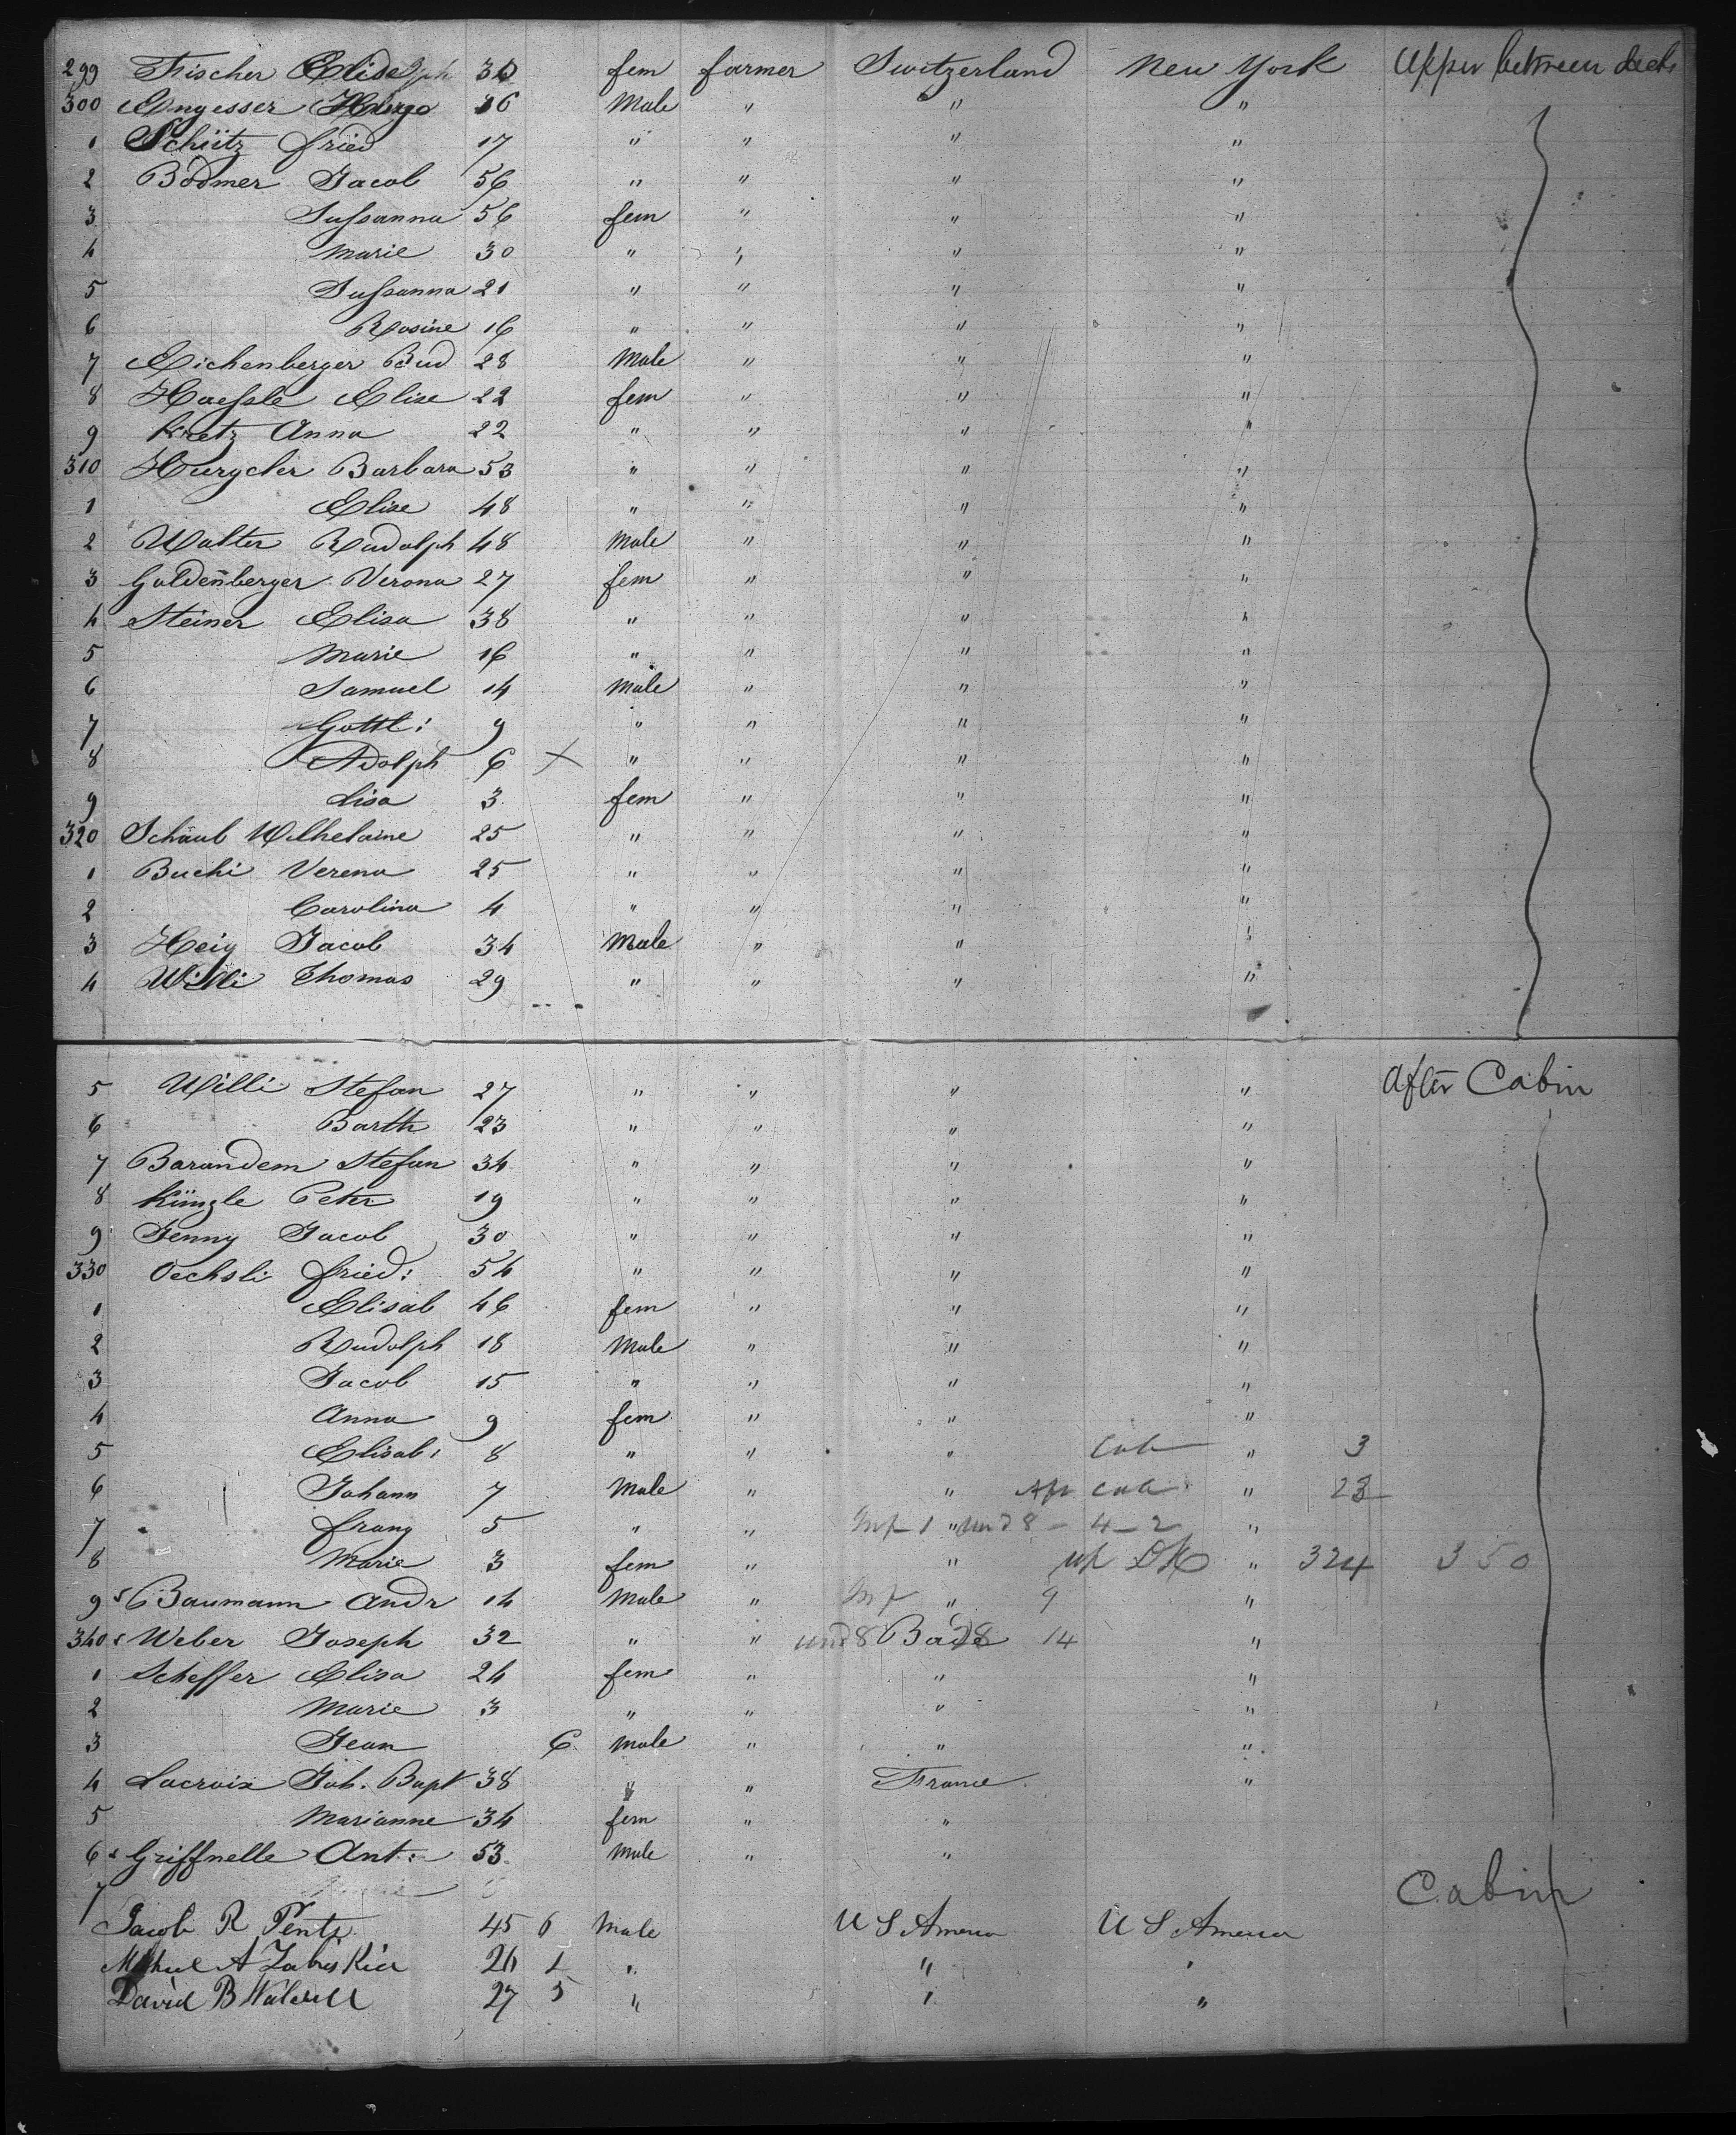 299 Fischer Elise 30 fem farmer Switzerland New York Upper between decks
300 Hugo 36 Male " " "
1 Schütz fried 17 " " " "
2 Bodmer Jacob 56 " " " "
3 Sussanna 56 fem " " "
4 Marie 30 " " " "
5 Sussanna 21 " " " "
6 Rosine 16 " " " "
7 Eichenberger Rud 28 Male " " "
8 Haessle Elise 22 fem " " "
9 Kretz Anna 22 " " " "
310 Hurycher Barbara 53 " " " "
1 Elise 48 " " " "
2 Walter Rudolph 48 Male " " "
3 Goldenberger Verona 27 fem " " "
4 Steiner Elisa 38 " " " "
5 Marie 16 " " " "
6 Samuel 14 Male " " "
7 Gottl: 9 " " " "
8 Adolph 6 X " " " "
9 Lisa 3 fem " " "
320 Schaub 25 " " " "
1 Buchi Verena 25 " " " "
2 Carolina 4 " " " "
3 Heig Jacob 34 Male " " "
4 Willi Thomas 29 " " " "
5 Willi Stefan 27 " " " " After Cabin
6 Barth 23 " " " "
7 Barandem Stefan 34 " " " "
8 Künzle Peter 19 " " " "
9 Jenny Jacob 30 " " " "
330 Oechsli fried: 54 " " " "
1 Elisab 46 fem " " "
2 Rudolph 18 Male " " "
3 Jacob 15 " " " "
4 Anna 9 fem " " "
5 Elisab: 8 " " " Cab " 3
6 Johann 7 Male " " Cab " 23
7 franz 5 " " Inf 1 " und 8 - 4 - 2 "
8 Marie 3 fem " " up " 324 350
9 Baumann Andr 14 Male " Inf " 9 "
340 Weber Joseph 32 " " und 8 Bade 14 "
1 Scheffer Elisa 24 fem " " "
2 Marie 3 " " " "
3 Jean 6 Male " " "
4 Lacroix Joh. Bapt 38 " " France "
5 Marianne 34 fem " "
6 Griffnelle Ant: 53 Male " "
7 Cabin
Jacob R Pentz 45 6 Male U S America U S America
A Zabriskie 26 1 " " "
David B 27 5 " " "